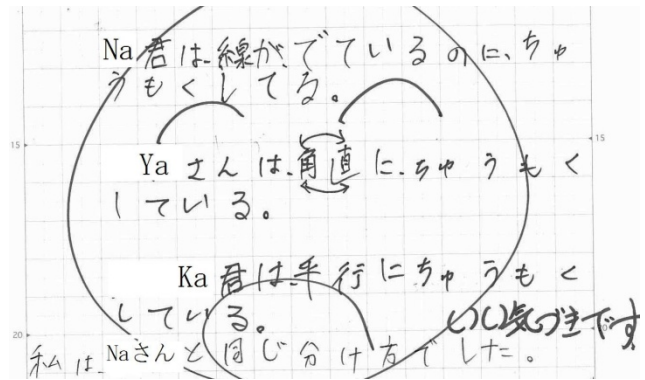 Na君は、線が、でているのに、ちゅ
うもくしてる。
15 15
Yaさんは、角直に、ちゅうもく
している。
Ka君は平行にちゅうもく
している。
いい気づきです
20
私は、Naさんと同じ分け方でした。